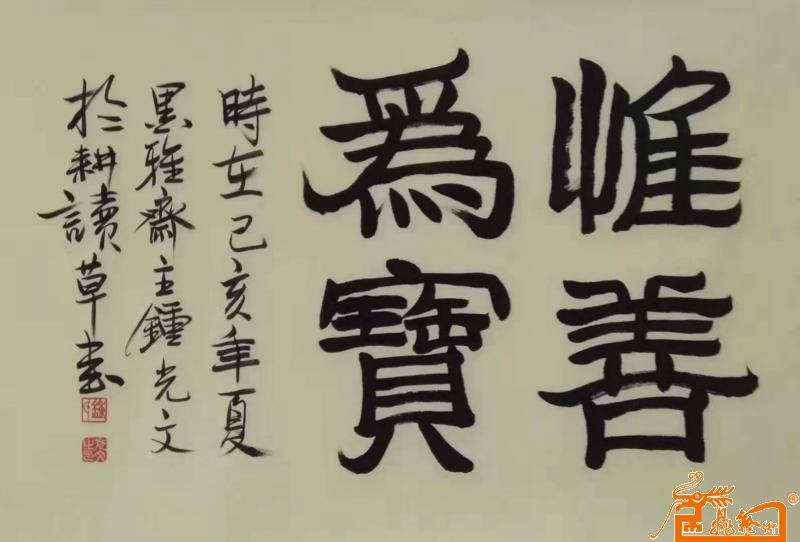 惟善
為寶
時在己亥年夏
墨雅齋主鍾光文
於耕讀草堂